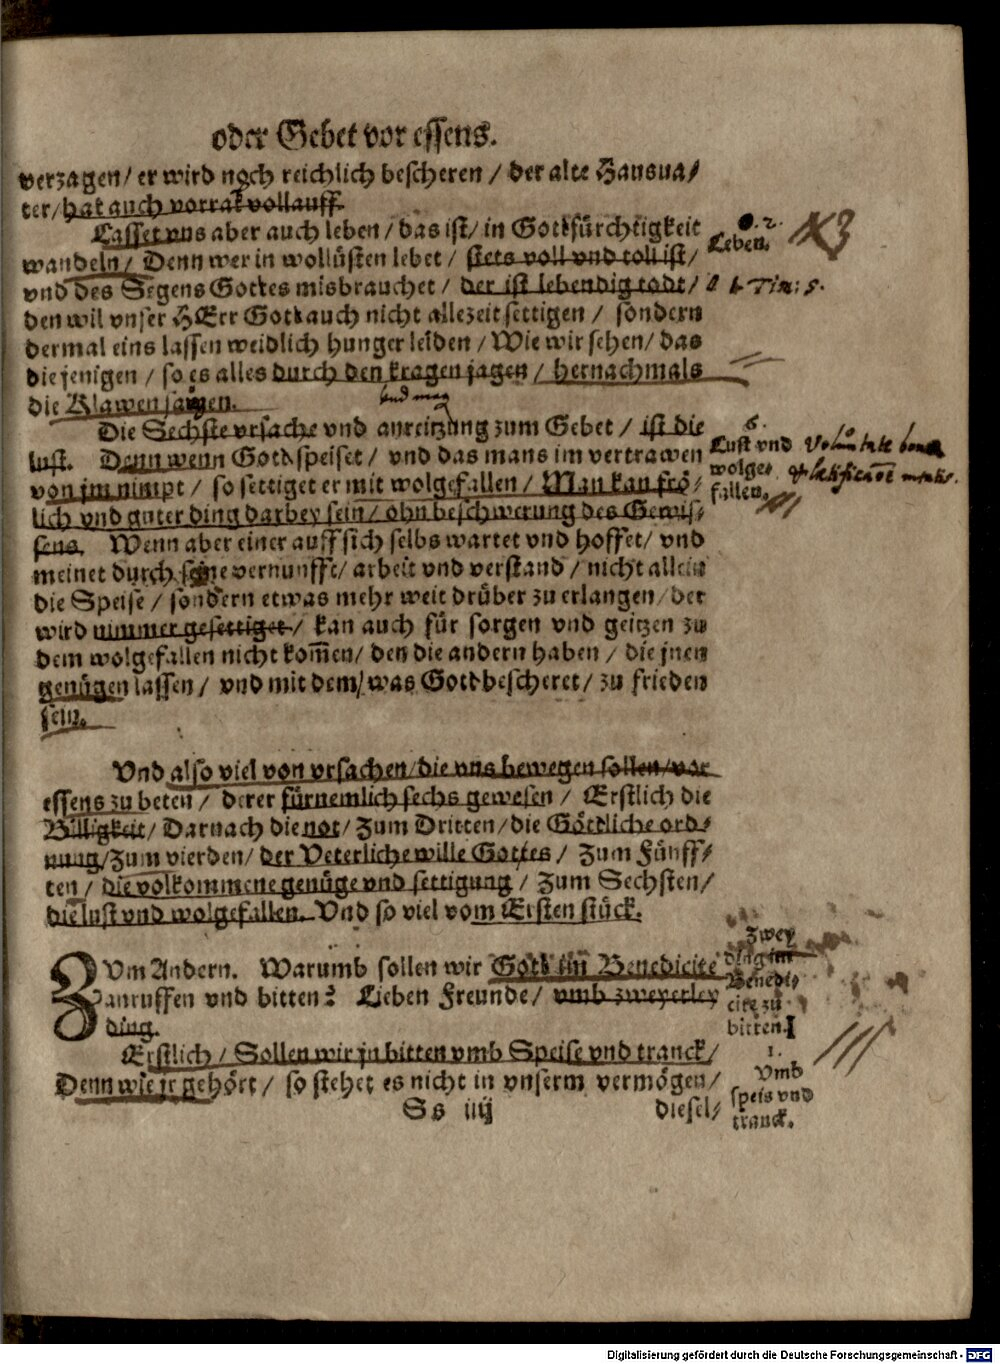 oder Gebet vor essens.
verzagen / er wird noch reichlich bescheren / der alte Hausva⸗
ter / hat auch vorrat vollauff.
Lasset vns aber auch leben / das ist / in Gottfürchtigkeit
wandeln / Denn wer in wollüsten lebet / stets voll vnd toll ist /
vnd des Segens Gottes misbrauchet / der ist lebendig todt /
den wil vnser HErr Gott auch nicht allezeit settigen / sondern
dermal eins lassen weidlich hunger leiden / Wie wir sehen / das
die jenigen / so es alles durch den kragen jagen / hernachmals
die Klawen saugen.
Die Sechste vrsache vnd anreitzung zum Gebet / ist die
lust. Denn wenn Gott speiset / vnd das mans im vertrawen
von jm nimpt / so settiget er mit wolgefallen / Man kan frö⸗
lich vnd guter ding darbey sein / ohn beschwerung des Gewis⸗
sens. Wenn aber einer auff sich selbs wartet vnd hoffet / vnd
meinet durch seine vernunfft / arbeit vnd verstand / nicht allein
die Speise / sondern etwas mehr weit drüber zu erlangen / der
wird nimmer gesettiget / kan auch für sorgen vnd geitzen zu
dem wolgefallen nicht kom̄en / den die andern haben / die jnen
genügen lassen / vnd mit dem / was Gott bescheret / zu frieden
sein.
Leben.
1. Tim: 5.
6.
Lust vnd
wolge⸗
fallen.
Vnd also viel von vrsachen / die vns bewegen sollen / vor
essens zu beten / derer fürnemlich sechs gewesen / Erstlich die
Billigkeit / Darnach die not / Zum Dritten / die Göttliche ord⸗
nung / Zum vierden / der Veterliche wille Gottes / Zum Fünff⸗
ten / die volkommene genüge vnd settigung / Zum Sechsten /
die lust vnd wolgefallen. Vnd so viel vom Ersten stück.
ZVm Andern. Warumb sollen wir Gott im Benedicite
anruffen vnd bitten? Lieben Freunde / vmb zweyerley
ding.
Erstlich / Sollen wir jn bitten vmb Speise vnd tranck /
Denn wie jr gehört / so stehet es nicht in vnserm vermögen /
Zwey
ding im
Benedi⸗
cite zu
bitten.
1.
Vmb
speis vnd
tranck.
Ss iiij
diesel⸗
Digitalisierung gefördert durch die Deutsche Forschungsgemeinschaft - DFG